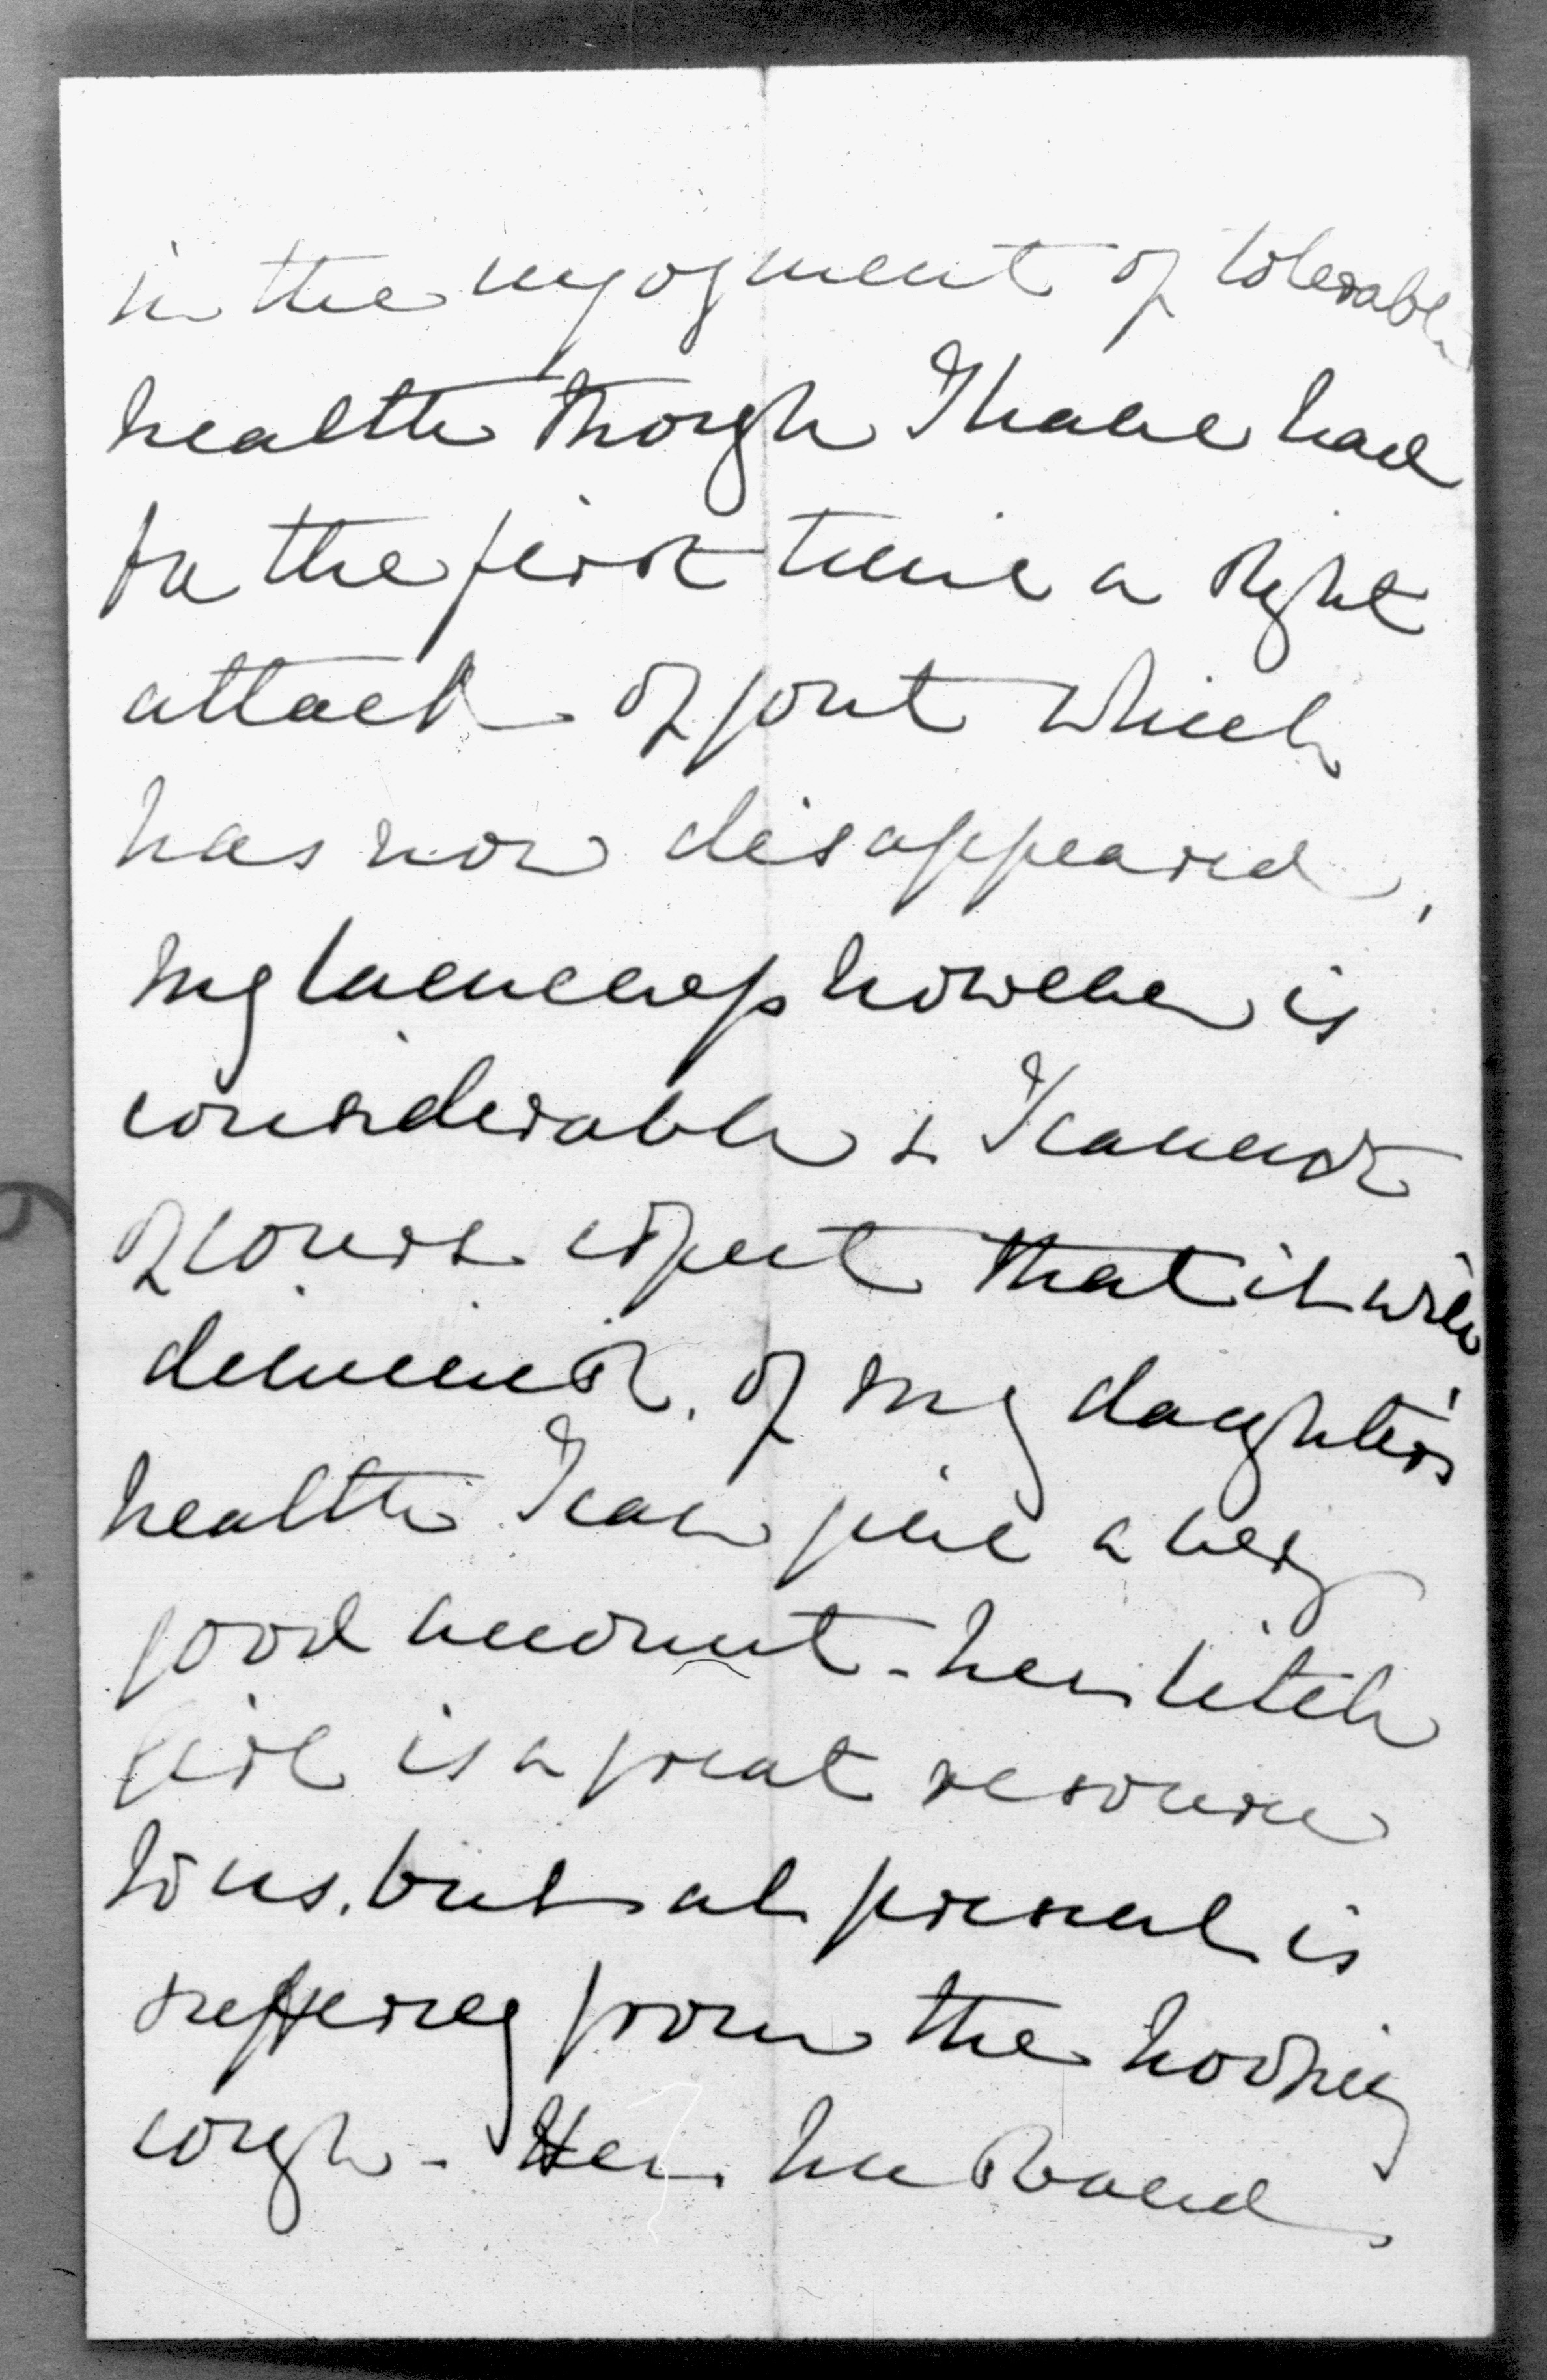 in the enjoyment of tolerable
health though I have had
for the first time a slight
attack of gout which
has now disappeared,
my lameness however is
considerable & I cannot
of course expect that it will
diminish. of my daughter's
health I can give a very
good account - her little
girl is a great resource
to us. but at present is
suffering from the hooping
cough - Her husband